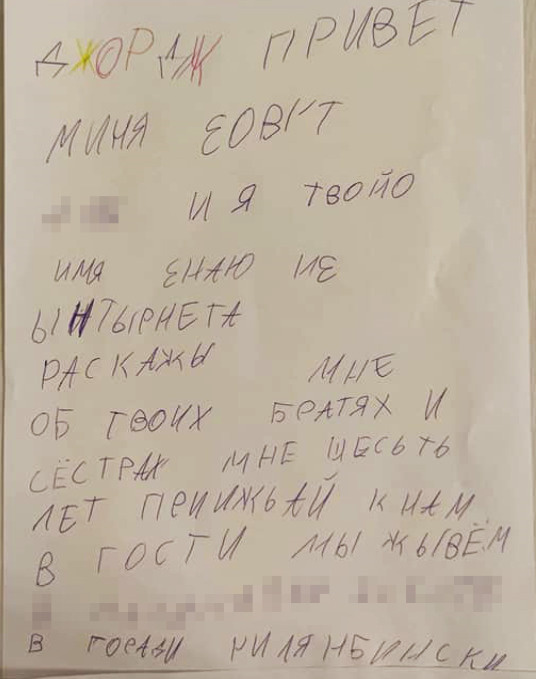 ДЖОРДЖ ПРИВЕТ
МИНЯ ЗОВУТ
И Я ТВОЙО
ИМЯ ЗНАЮ ИЗ
ЫНТЫРНЕТА
РАСКАЖЫ МНЕ
ОБ ТВОИХ БРАТЯХ И
СЁСТРАХ МНЕ ШЕСЬТЬ
ЛЕТ ПРИИЖЬАЙ К НАМ
В ГОСТИ МЫ ЖЫВЁМ
В ГОРАДИ ЧИЛЯНБИНСКИ